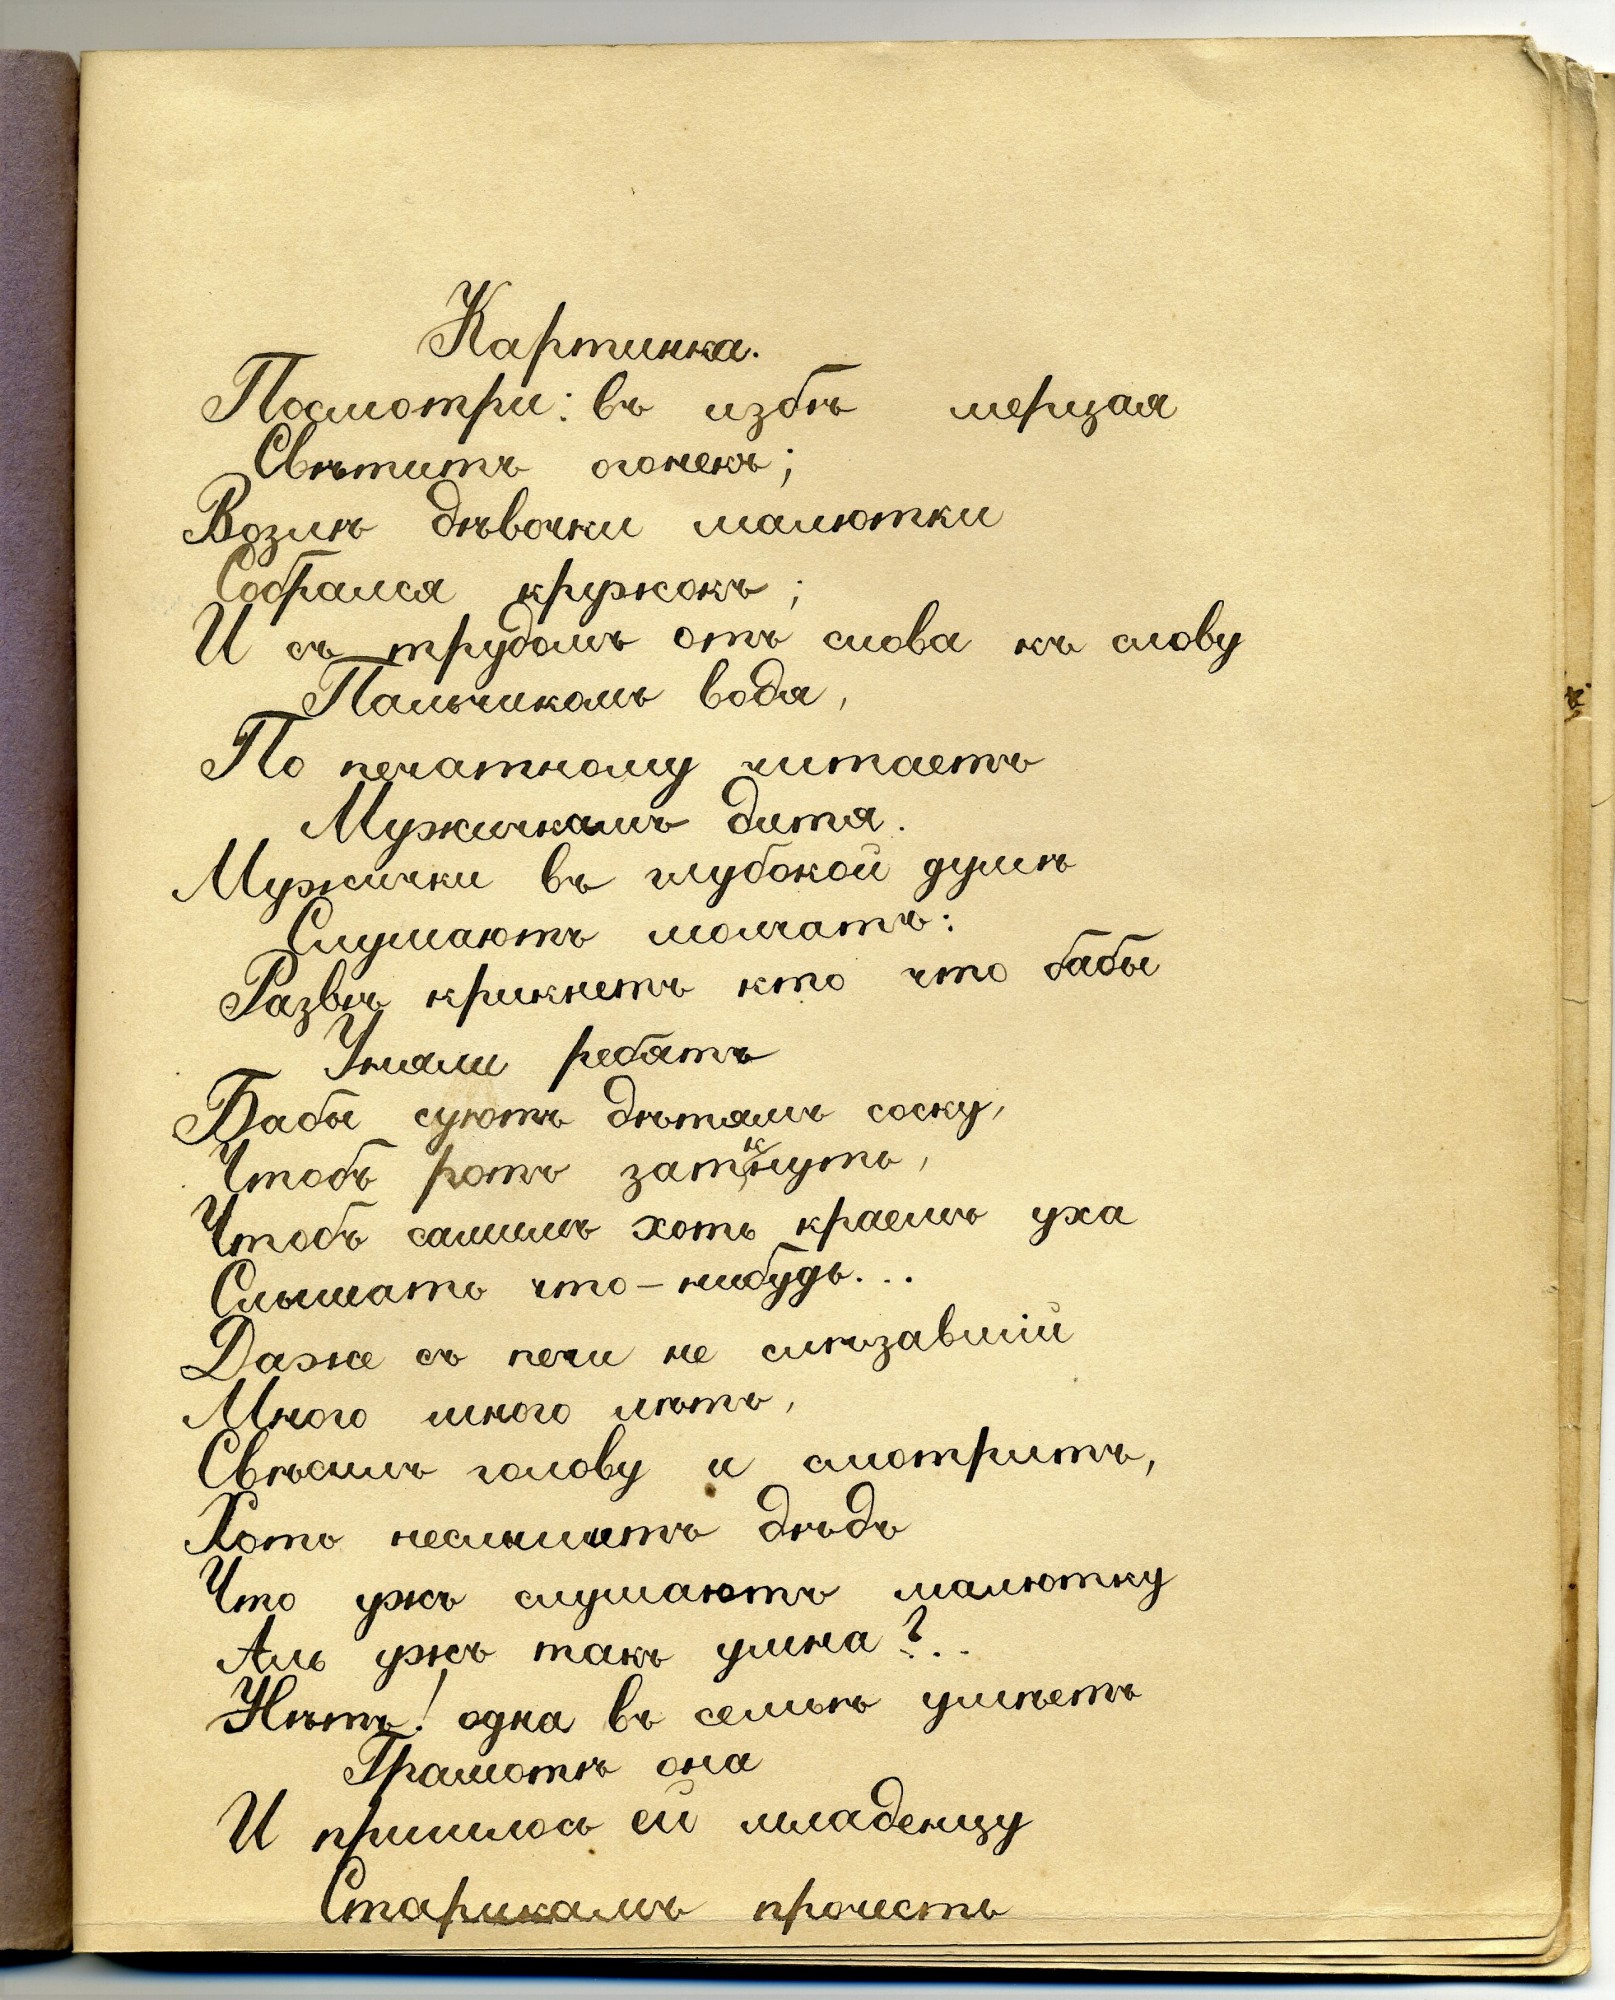 Картинка.
Посмотри: въ избѣ мерцая
Свѣтитъ огонекъ;
Возлѣ дѣвочки малютки
Собрался кружокъ;
И съ трудомъ отъ слова къ слову
Пальчикомъ водя,
По печатному читаетъ
Мужичкамъ дитя.
Мужички въ глубокой думѣ
Слушаютъ молчатъ:
Развѣ крикнетъ кто что бабы
Уняли ребятъ
Бабы суютъ дѣтямъ соску,
Чтобъ ротъ заткнуть,
Чтобъ самимъ хоть краемъ уха
Слышать что-нибудь...
Даже съ печи не слѣзавшій
Много много лѣтъ,
Свѣсилъ голову и смотритъ,
Хоть неслышитъ дѣдъ
Что ужъ слушаютъ малютку
Аль ужъ такъ умна?..
Нѣтъ! одна въ семьѣ умѣетъ
Грамотѣ она
И пришлось ей младенцу
Старикамъ прочесть